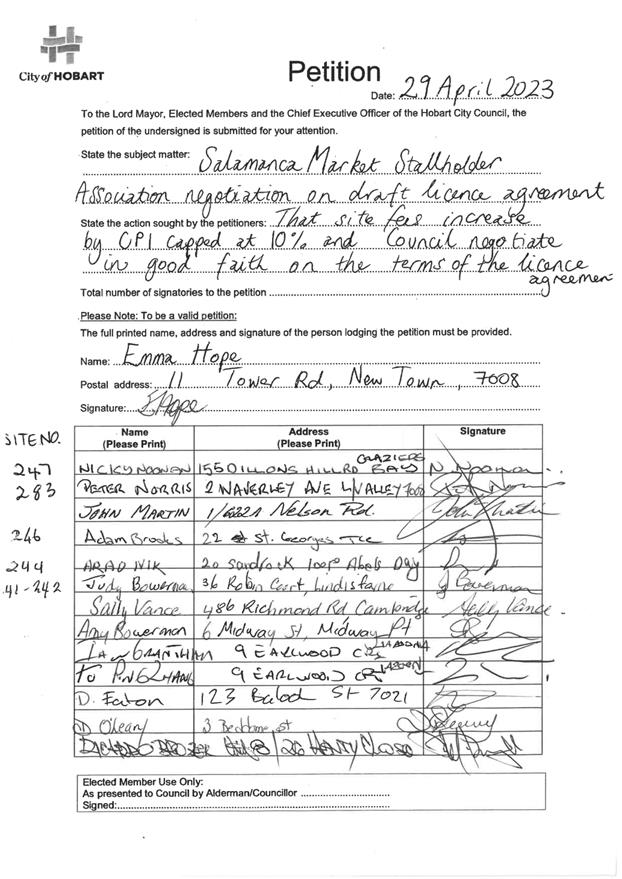 City of HOBART
Petition
Date: 29 April 2023
To the Lord Mayor, Elected Members and the Chief Executive Officer of the Hobart City Council, the
petition of the undersigned is submitted for your attention.
State the subject matter: Salamanca Market Stallholder
Association negotiation on draft licence agreement
State the action sought by the petitioners: That site fees increase
by CPI capped at 10% and Council negotiate
in good faith on the terms of the licence
agreement
Total number of signatories to the petition
Please Note: To be a valid petition:
The full printed name, address and signature of the person lodging the petition must be provided.
Name: Emma Hope
Postal address: 11 Tower Rd, New Town, 7008
Signature: E Hope
SITE NO. Name Address Signature
(Please Print) (Please Print)
247 NICKY NOONAN 155 DILLONS HILL RD GLAZIERS BAY N Noonan
283 PETER NORRIS 2 WAVERLEY AVE L/VALLEY 7008
JOHN MARTIN Nelson Rd. John Martin
246 Adam Brooks 22 St. Georges Tce
244 ARAD NIK 20 Sandrock loop Abels Bay
41-242 Judy Bowerman 36 Robin Court, Lindisfarne J Bowerman
Sally Vance 486 Richmond Rd Cambridge Sally Vance
Amy Bowerman 6 Midway St, Midway Pt
IAN GRANTHAM 9 EARLWOOD CT
9 EARLWOOD CT
D. Eaton 123 St 7021
D O'Leary 3 st
26 HENTY CLOSE
Elected Member Use Only:
As presented to Council by Alderman/Councillor
Signed: